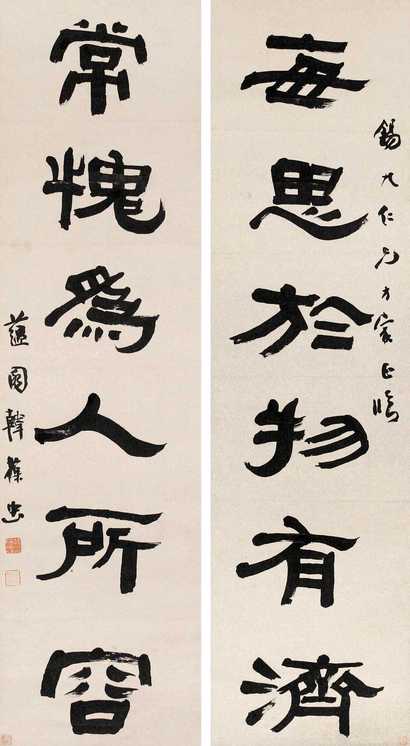 每思於物有濟
錫九仁兄方家正臨
常愧為人所容
蘊園韓葆忠